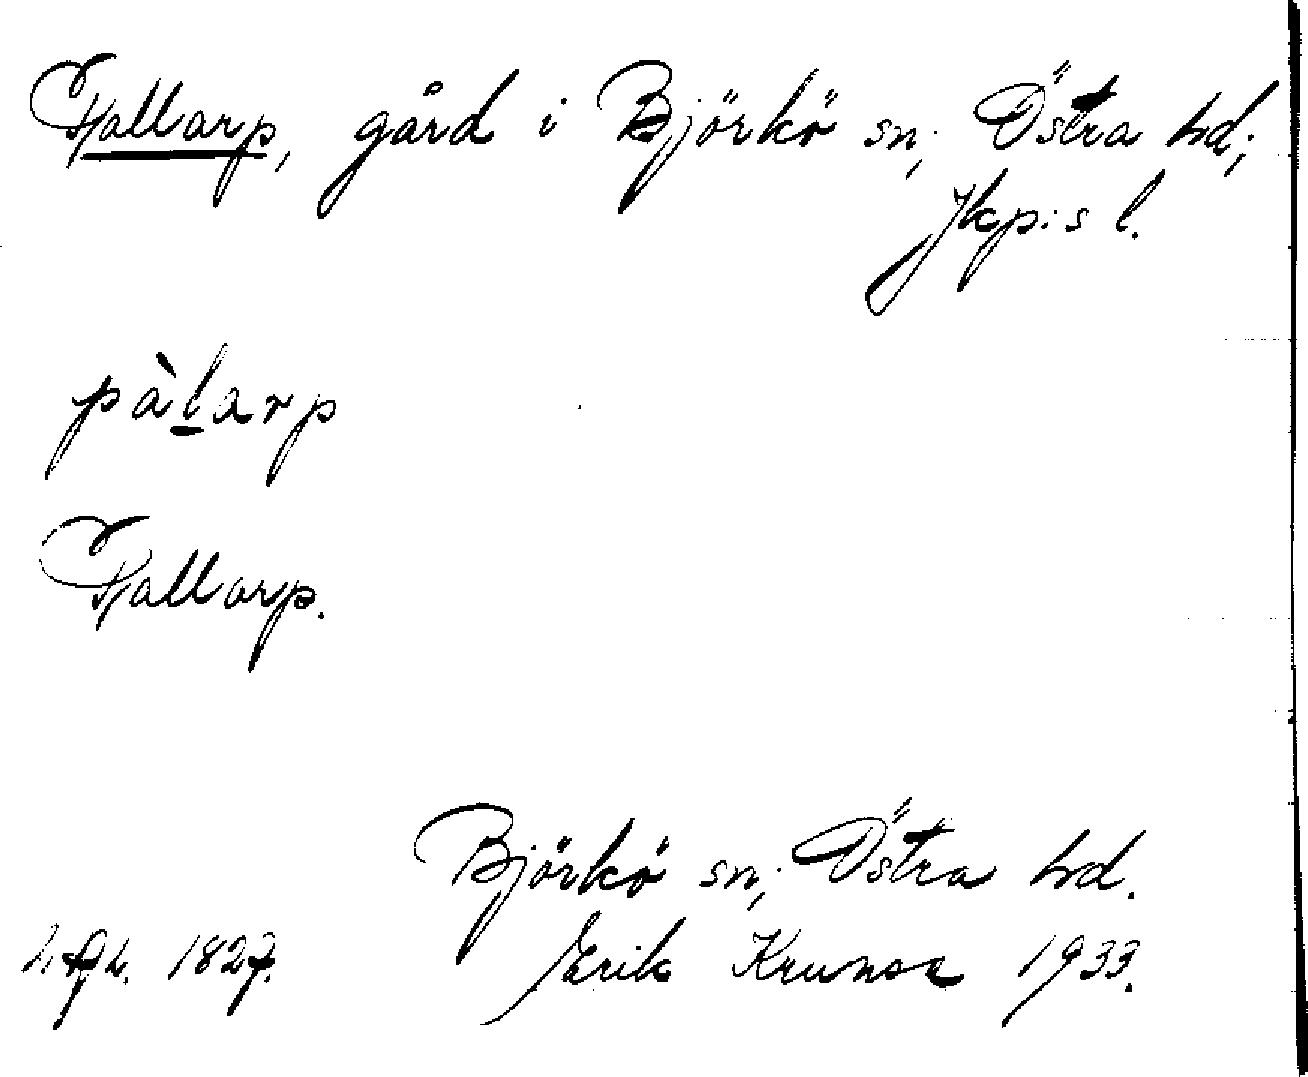 Pallarp, gård i Björkö sn, Östra hd,
Jkp:s l.
pàl̲arp
Pallarp.
Björkö sn, Östra hd.
Erik 1933.